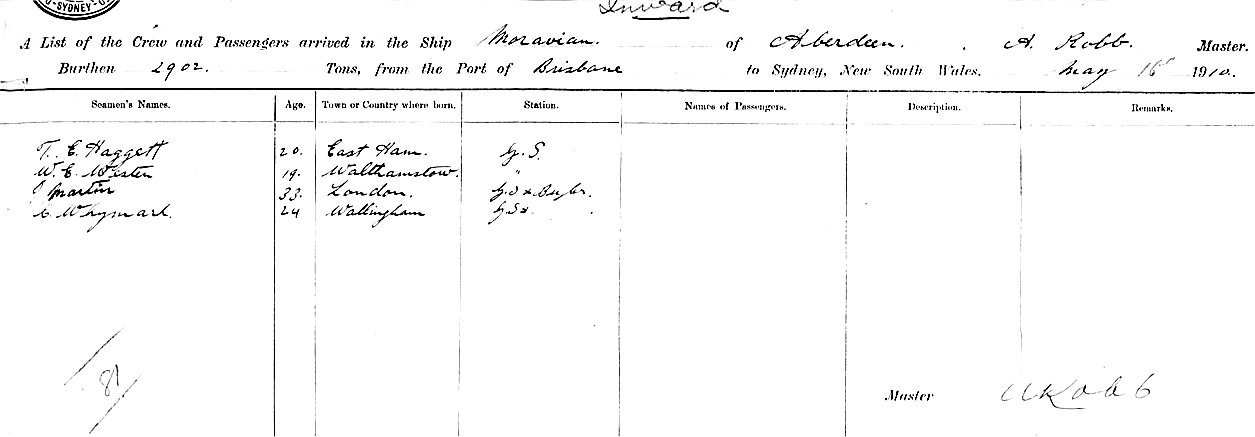 SYDNEY
Inward
A List of the Crew and Passengers arrived in the Ship Moravian. of Aberdeen. A. Robb. Master.
Burthen 2902. Tons, from the Port of Brisbane to Sydney, New South Wales. May 16 1910.
Seamen's Names. Age. Town or Country where born. Station. Names of Passengers. Description. Remarks.
T. E. Haggett 20. East Ham. G. S.
W. E. Westen 19. Walthamstow. "
J Martin 33. London.
C. Whymark. 24 Wallingham
81
Master A Robb